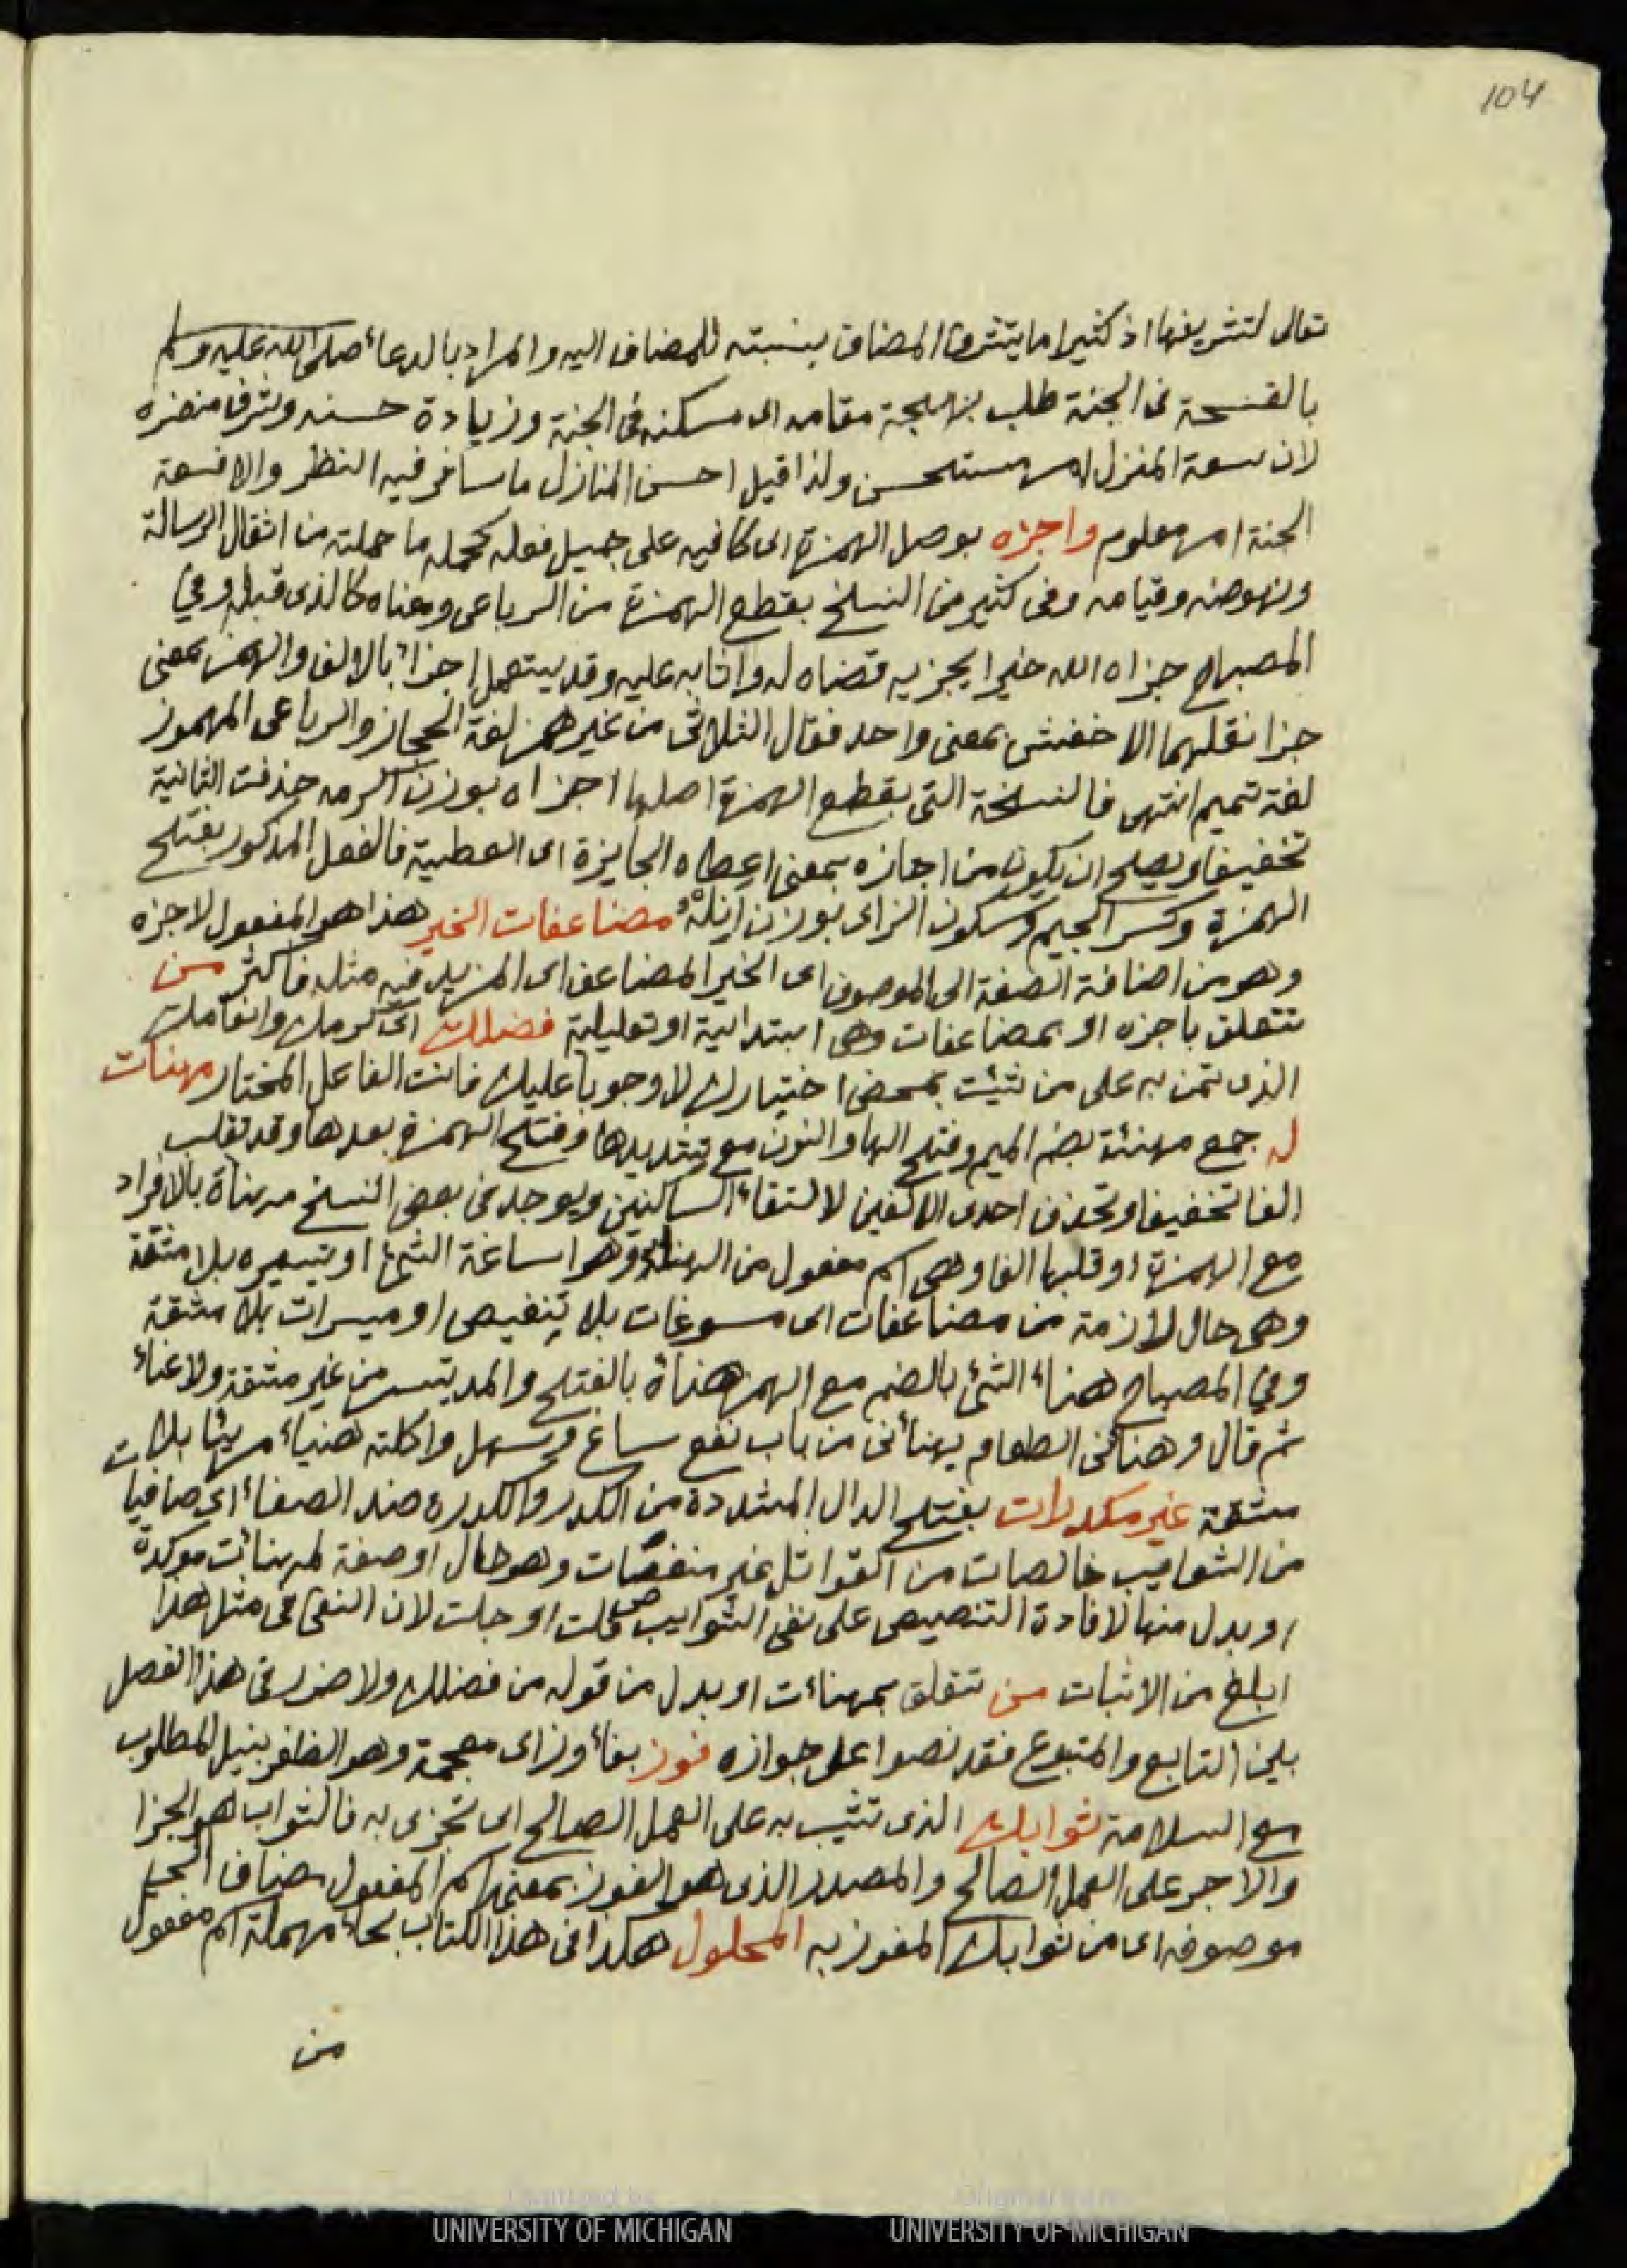 104
تعالى لتشريفها اذ كثيرا ما يتشرف المضاف بنسبته للمضاف اليه والمراد بالدعاء صلى الله عليه وسلم
بالفسحة فى الجنة طلب بهجة مقامه اى مسكنه فى الجنة وزيادة حسنه وشرف منظره
لان سعة المنزل امر مستحسن ولذا قيل احسن المنازل ما سافر فيه النظر والا فسعة
الجنة امر معلوم واجزه بوصل الهمزة اى كافيه على جميل فعله كحمله ما حملته من اثقال الرسالة
ونهوضه وقيامه وفى كثير من النسخ بقطع الهمزة من الرباعى ومعناه كالذى قبله وفي
المصباح جزاه الله خيرا يجزيه قضاه له واثابه عليه وقد يستعمل اجزأ بالالف والهمز بمعنى
جزا نقلهما الاخفش بمعنى واحد فقال الثلاثى من غير همز لغة الحجاز والرباعى المهموز
لغة تميم انتهى فالنسخة التى بقطع الهمزة اصلها اجزاه بوزن اكرمه حذفت الثانية
تخفيفا ويصلح ان يكون من اجازه بمعنى اعطاه الجايزة اى العطية فالفعل المذكور بفتح
الهمزة وكسر الجيم وسكون الزاى بوزن انله مضاعفات الخير هذا هو المفعول لاجزه
وهو من اضافة الصفة الى الموصوف اى الخير المضاعف اى المزيد فيه مثله فاكثر من
تتعلق باجزه او بمضاعفات وهى ابتدائية او تعليلية فضلك اى كرمك وانعامك
الذى تمن به على من شئت بمحض اختيارك لا وجوبا عليك فانت الفاعل المختار مهنات
له جمع مهنئة بضم الميم وفتح الها والنون مع تشديدها وفتح الهمزة بعدها وقد تقلب
الفا تخفيفا وتحذف احدى الالفين لالتقاء الساكنين ويوجد فى بعض النسخ مهناة بالافراد
مع الهمزة او قلبها الفا وهى اسم مفعول من الهناء وهو اساغة الشئ او تيسيره بلا مشقة
وهى حال لازمة من مضاعفات اى مسوغات بلا تنغيص او ميسرات بلا مشقة
وفي المصباح هناء الشئ بالضم مع الهمز هناة بالفتح والمد يتسر من غير مشقة ولا عناء
ثم قال وهنأنى الطعام يهنأنى من باب نفع ساغ وسهل واكلته هنياء مريئا بلا
مشقة غير مكدرات بفتح الدال المشددة من الكدر والكدره ضد الصفاء اى صافيا
من الشوايب خالصات من القواتل غير منغصات وهو حال او صفة لمهنائت موكدة
او بدل منها لافادة التنصيص على نفى الشوايب جلت لان النفى فى مثل هذا
ابلغ من الاثبات من تتعلق بمهنائت او بدل من قوله من فضلك ولا ضرر فى هذا الفصل
بلين التابع والمتبوع فقد نصوا على جوازه فوز بفاء وزاى معجمة وهو الظفر بنيل المطلوب
مع السلامة ثوابك الذى تثيب به على العمل الصالح اى تجزى به فالثواب هو الجزا
والاجر على العمل الصالح والمصدر الذى هو الفوز بمعنى اسم المفعول مضاف الى
موصوفه اى من ثوابك المفوز به المحلول هكذا فى هذا الكتاب بحاء مهملة اسم مفعول
من
UNIVERSITY OF MICHIGAN
UNIVERSITY OF MICHIGAN